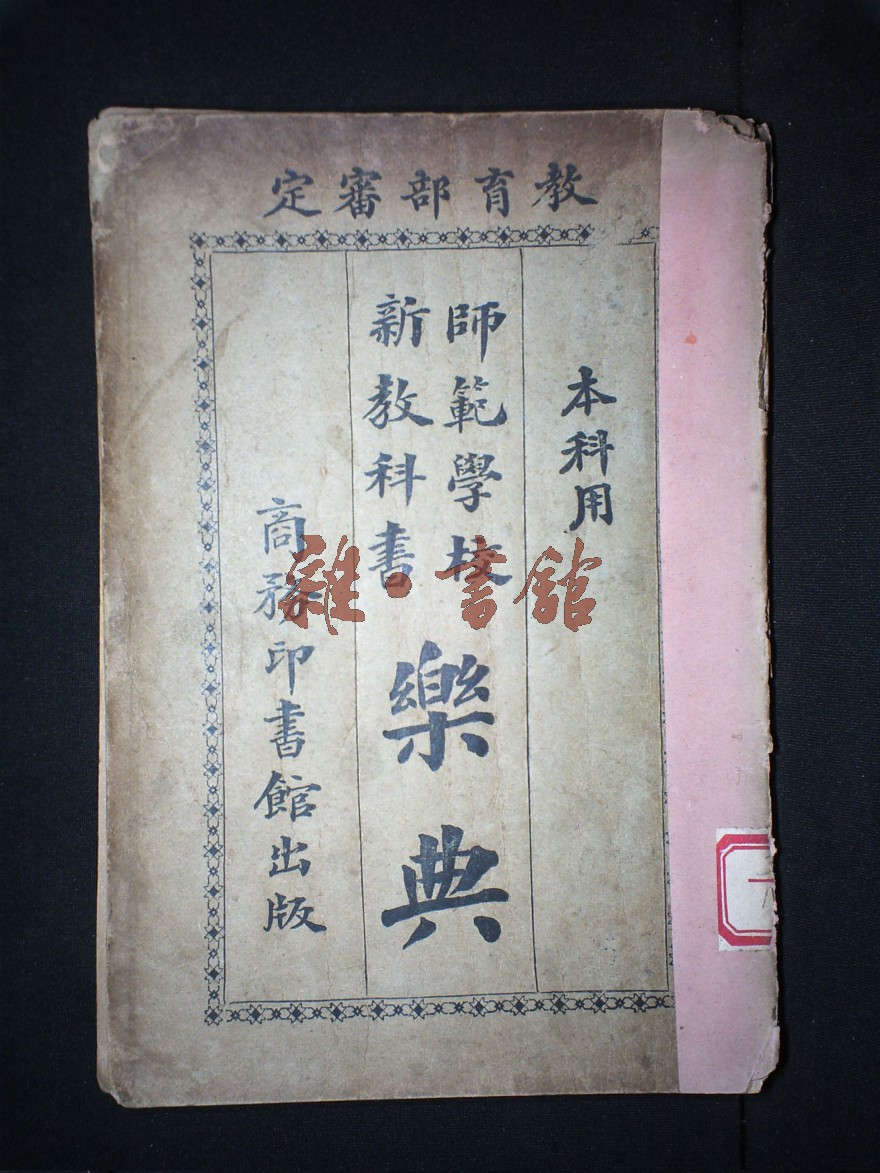 教育部審定
本科用
師範學校
新教科書
樂典
商務印書館出版
雜·書館